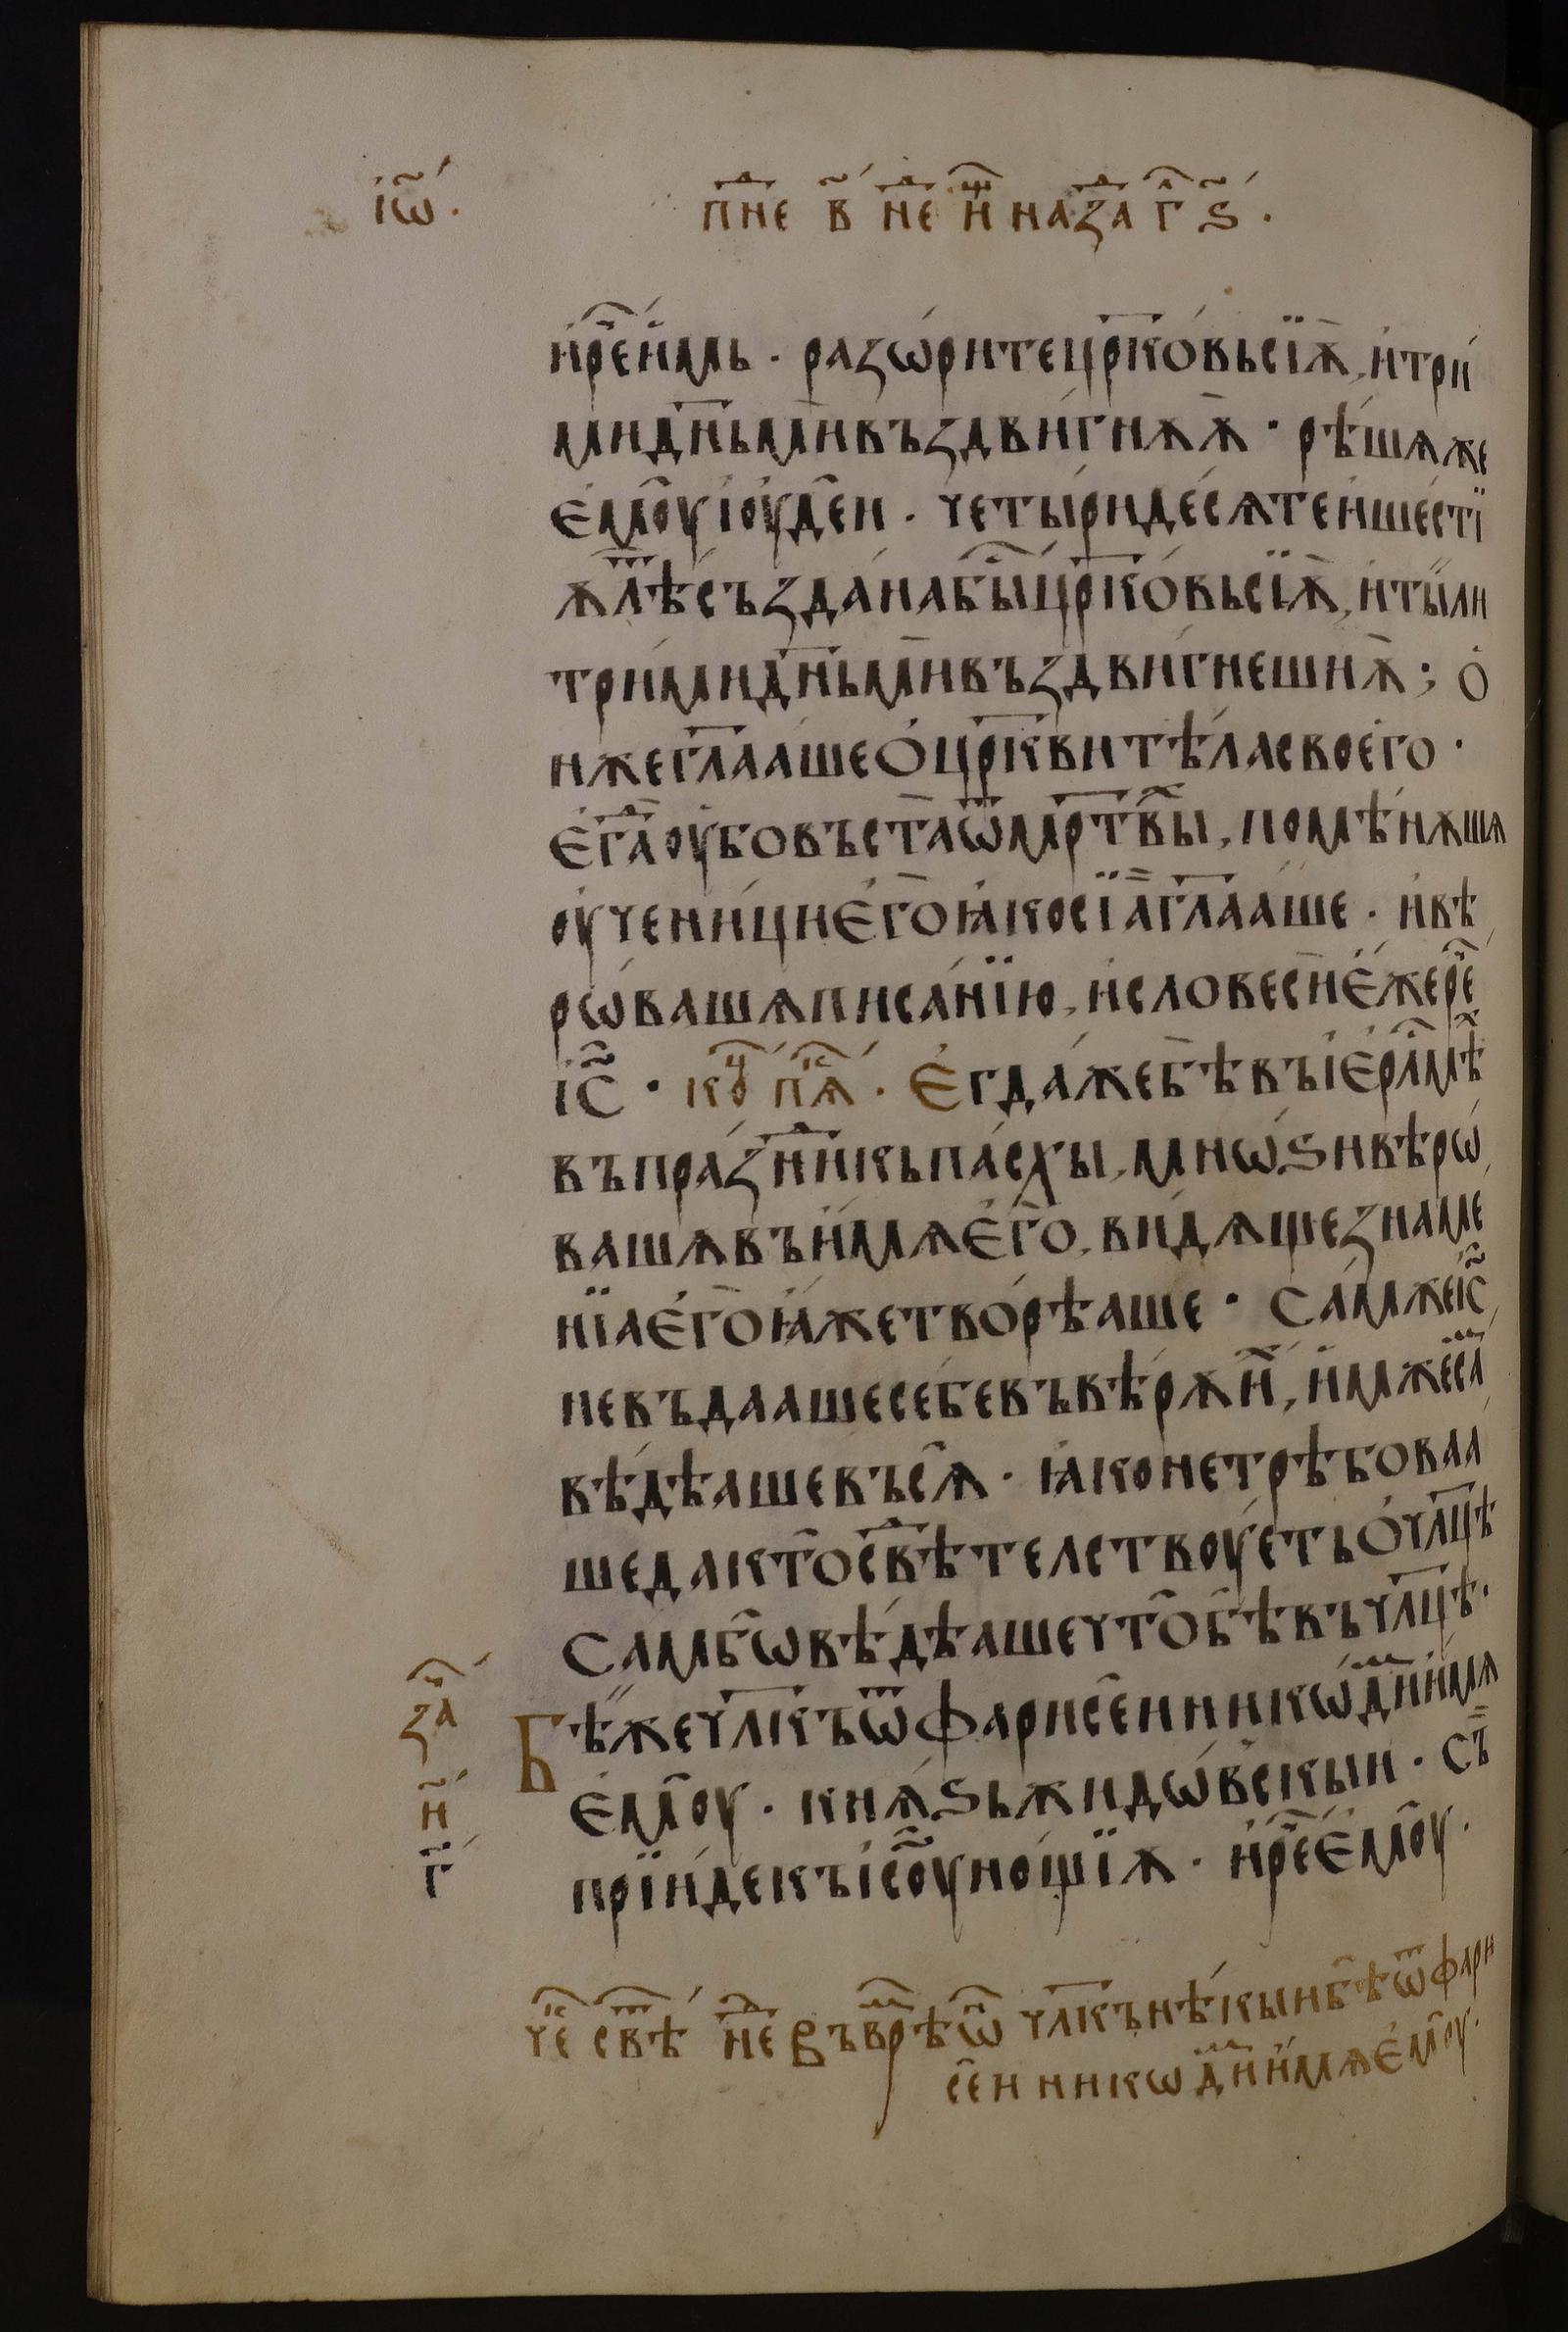 іѡ҃.
пⷩ҇е в҃ нⷣе иⷳ назаⷣ г҃ ѕ҃.
и҆рⷱ҇е и҆мь · разѡ́рите цр҃ко́вь сїѫ̀, и҆ три́
ми дн҃ьмѝ въздви́гнѫ ѫ̀ · рѣ́шѧ же
є҆мꙋ̑ і҆ꙋде̑и · четы́ридесѧте и҆ шесті
ѫ лⷮѣ създа́на бы̑ цр҃ко́вь сїѫ̀, и҆ ты́ ли
три́ми дн҃ьмѝ въздви́гнеши ѫ̀; о҆
н же гл҃а́аше о҆ цр҃кви тѣ́ла своего ·
є҆гⷣа ᲂу҆бо въста̀ ѿ мр҃твⷯы, помѣнѫшѧ
ᲂу҆чени́ци є҆го̀ ꙗ҆ко сїа̀ гл҃а́аше · и҆ вѣ
рѡ́вашѧ писа́нїю, и҆ словесѝ є҆́же рⷱ҇е
і҆с҃ · кⷪ҇ⷰ пⷭ҇ѧ · Є҆гда́ же бѣ̀ въ і҆є҆рⷭ҇лмⷯѣ
въ пра́зⷣникь па́схы, мнѡ́ѕи вѣ́рѡ
вашѧ въ и҆́мѧ є҆го̀, ви́дѧще знаме
нїа є҆го̀ ꙗ҆́же тво́рѣаше · Са́м же і҆с҃
не въдааше себе въ вѣ́рѫ иⷯ, и҆́мже саⷨ
вѣ́дѣаше въсѧ̑ · ꙗ҆ко не трѣбоваа
ше да кто̑ свⷣѣтелствꙋ́еть о҆ чл҃цѣ
Сам бѡ̑ вѣ́дѣаше что̑ бѣ̑ въ чл҃цѣ·
заⷱ҇
и҃
г҃
Бѣ́ же чл҃къ ѿ фарисе̑и никѡ́диⷨ и҆́мѧ
є҆мꙋ̑ · кнѧ́ѕь жидѡ́вскыи · Съ
прїи́де къ і҆с҃ꙋ но́щїѫ · и҆ рⷱ҇е є҆мꙋ̑·
чⷦ҇е свⷮѣ нⷣе Въ врⷨѣ ѡⷩ чл҃къ нѣ́кыи бѣ̑ ѿ фари
се̑и никѡ́диⷨ и҆́мѧ є҆мꙋ̑·